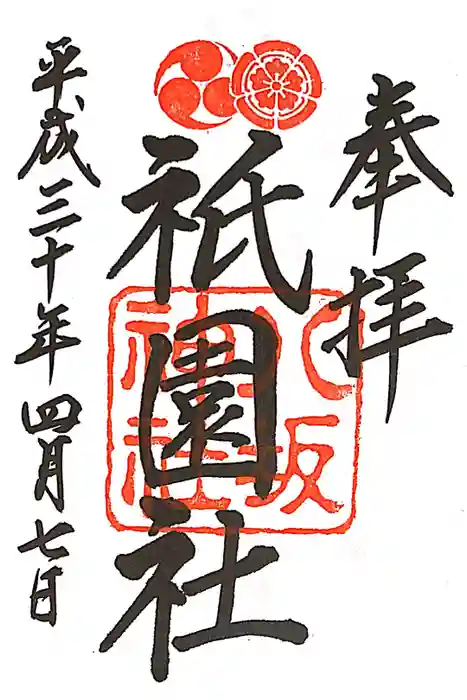 奉拝
祇園社
八坂
神社
平成三十年四月七日